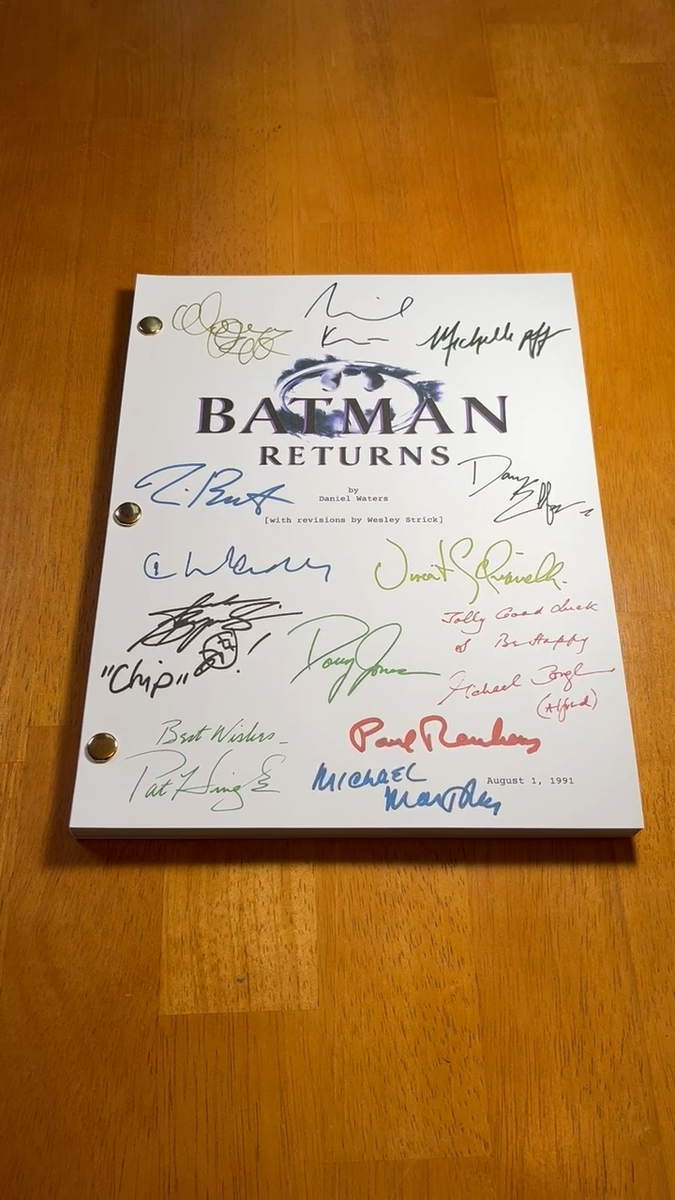 Michelle Pff
BATMAN
RETURNS
by
Daniel Waters
[with revisions by Wesley Strick]
T. Burt
Danny Elf
Vincent Schiavelli
"Chip"!
Doug Jones
Jolly Good Luck
& Be Happy
Michael Gough
(Alfred)
Best Wishes
Pat Hingle
Paul Reubens
MICHAEL
MURPHY
August 1, 1991